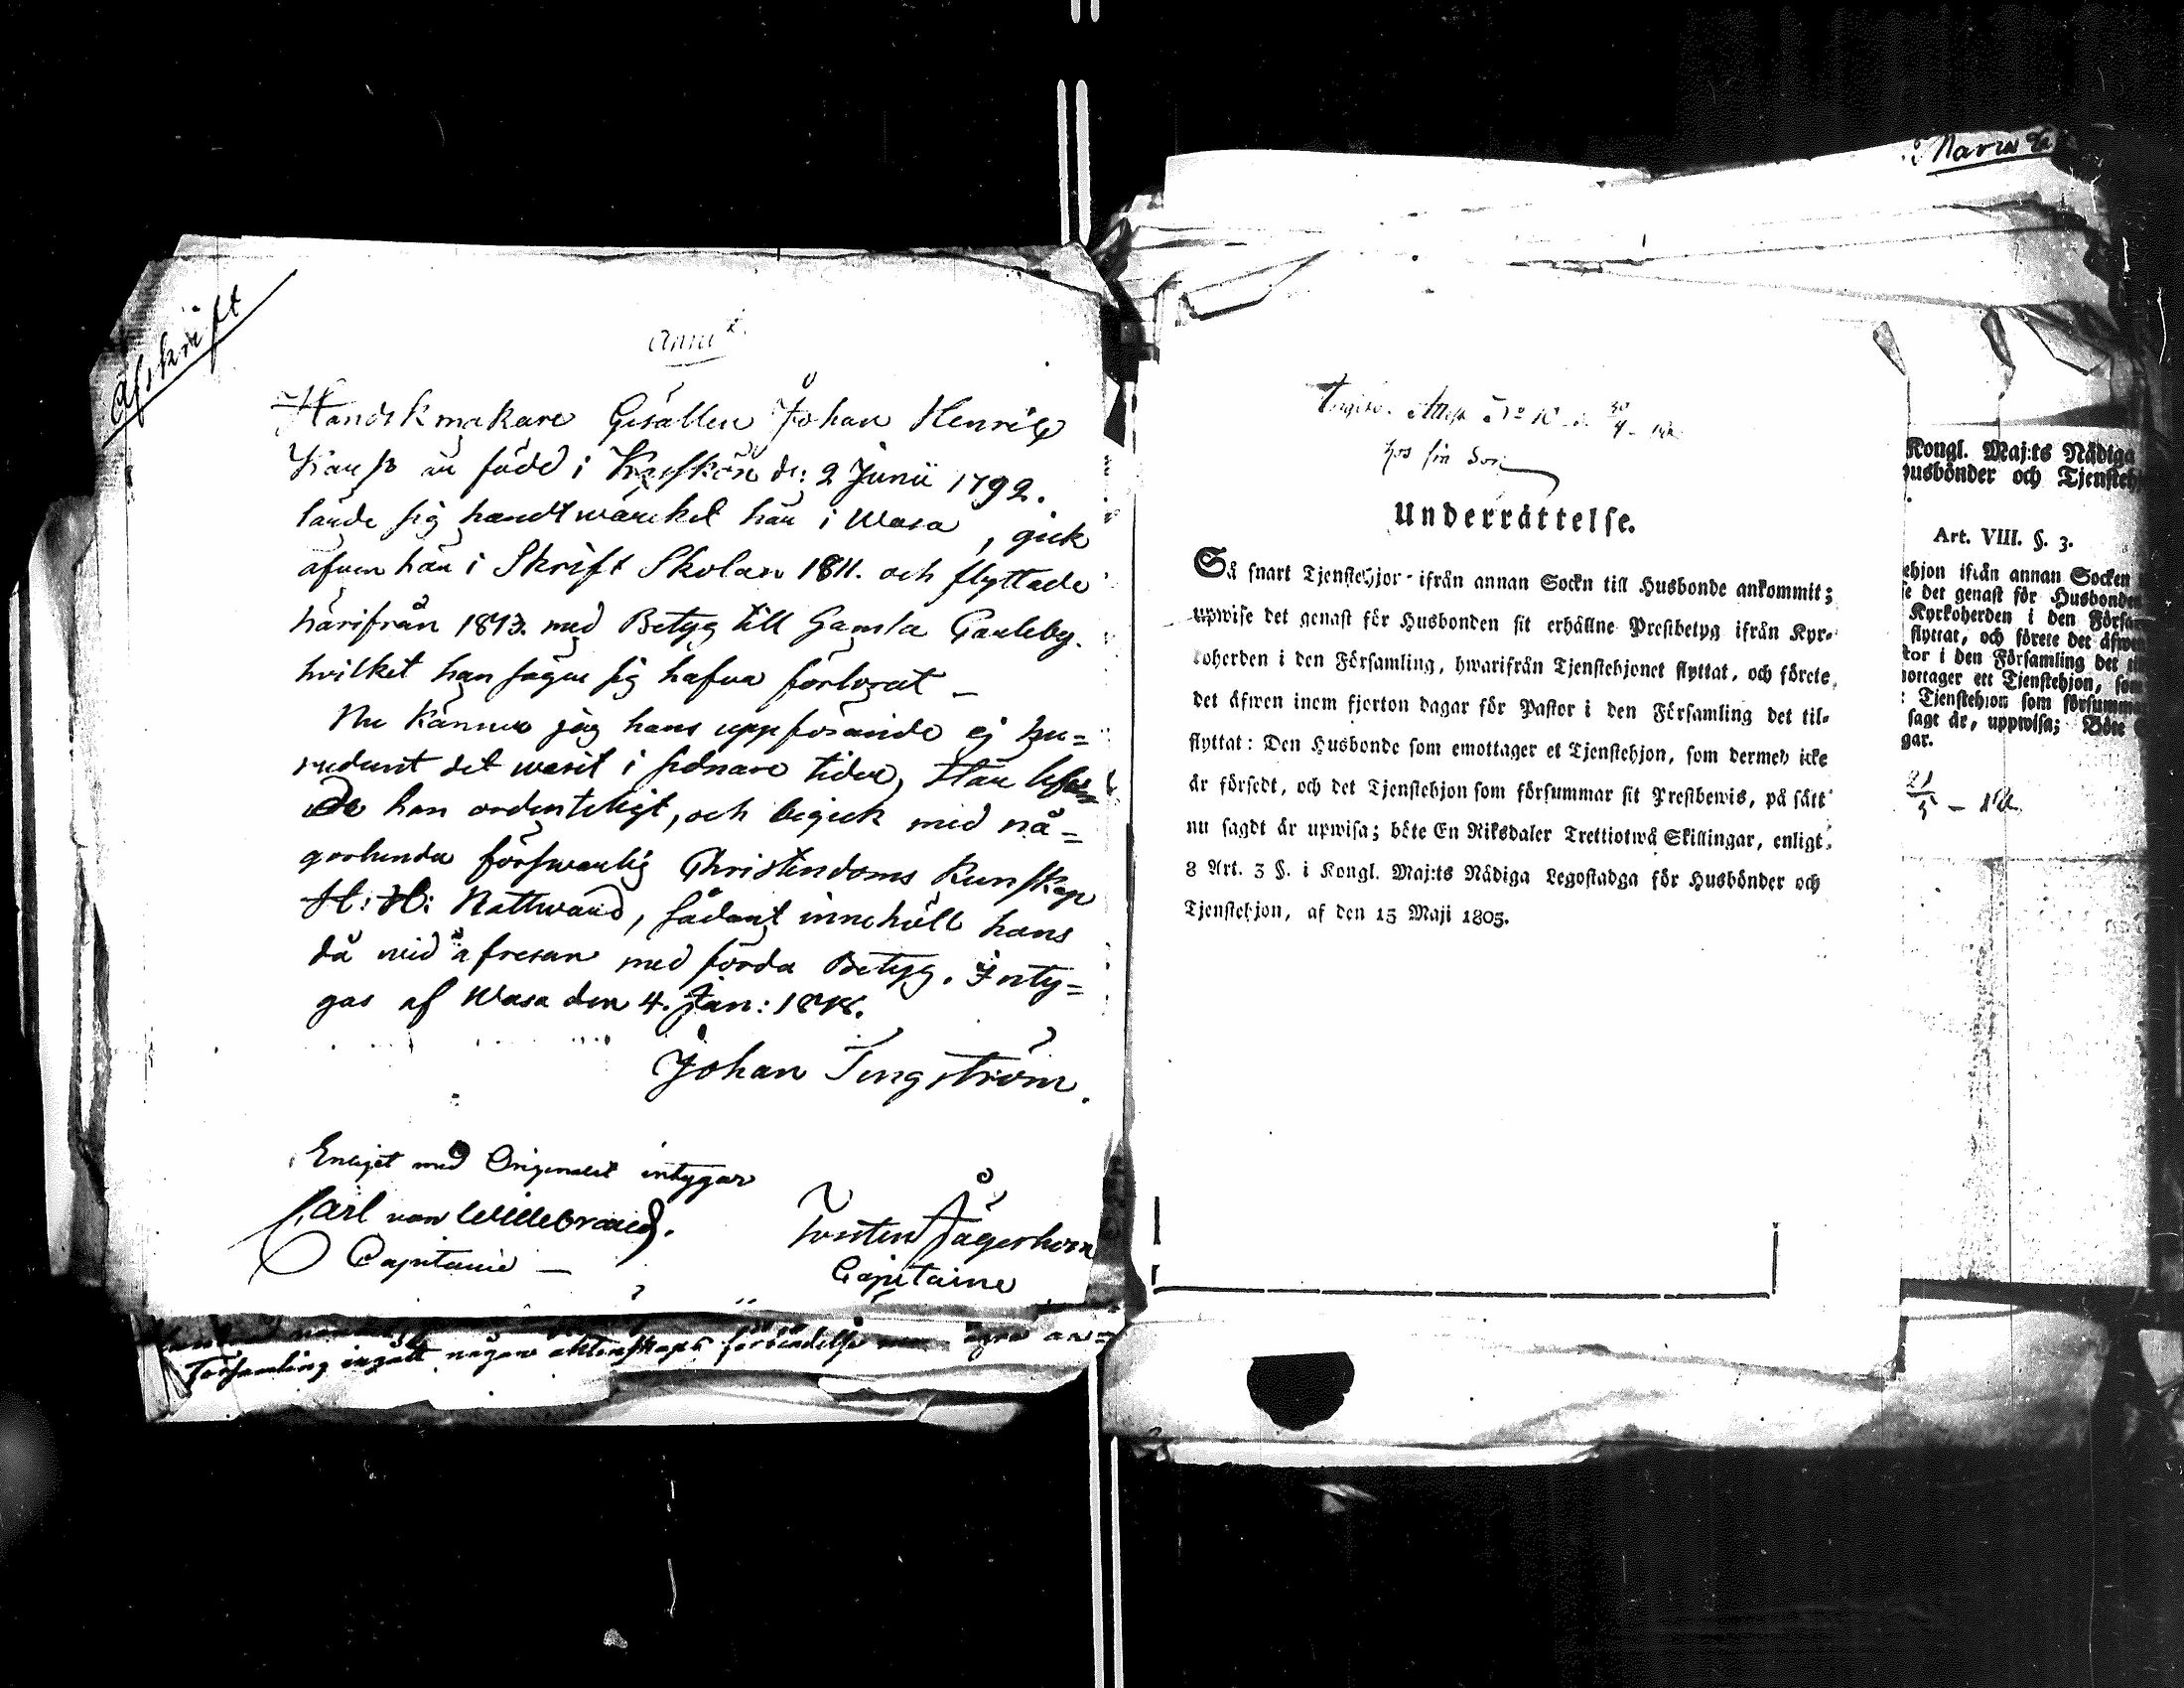 Afskrift
Handskmakare Gesällen Johan Henric
är född i de: 2 Junii 1792.
lärde sig handtwärcket här i Wasa, gick
äfwen här i Skrift Skolan 1811. och flyttade
härifrån 1813. med Betyg till Gamla Carleby.
hvilket han säger sig hafva förlorat –
Nu känner jag hans uppförande ej hu=
rudant det warit i sednare tider, Här
han ordenteligt, och begick med nå=
gorlunda förswarlig Christendoms Kunskap
H: H: Nattward, sådant innehöll hans
då wid afresan med förda Betyg. Inty=
gas af Wasa den 4. Jan:
Johan Tengström.
Enligt med Originalet intygar
Carl von Willebrand.
Capitaine –
Torsten Jägerhorn
Capitaine
Församling ingått någon äktenskaps förbindelse
Attest No 10
hos sin Son
Underrättelse.
Så snart Tjenstehjon ifrån annan Sockn till Husbonde ankommit;
upwise det genast för Husbonden sit erhållne Prestbetyg ifrån Kyr-
koherden i den Församling, hwarifrån Tjenstehjonet flyttat, och förete
det äfwen inom fjorton dagar för Pastor i den Församling det til-
flyttat: Den Husbonde som emottager et Tjenstehjon, som dermed icke
är försedt, och det Tjenstehjon som försummar sit Prestbewis, på sätt
nu sagdt är upwisa; böte En Riksdaler Trettiotwå Skillingar, enligt
8 Art. 3 §. i Kongl. Maj:ts Nådiga Legostadga för Husbönder och
Tjenstehjon, af den 15 Maji 1805.
Maria
Kongl. Maj:ts Nådiga
husbönder och Tjensteh
Art. VIII. §. 3.
ehjon ifrån annan Socken
se det genast för Husbonden
Kyrkoherden i den Försam
flyttat, och förete det äfwen
tor i den Församling det
ottager ett Tjenstehjon, som
Tjenstehjon som försumma
sagt är, uppwisa; Böte
gar.
21/5